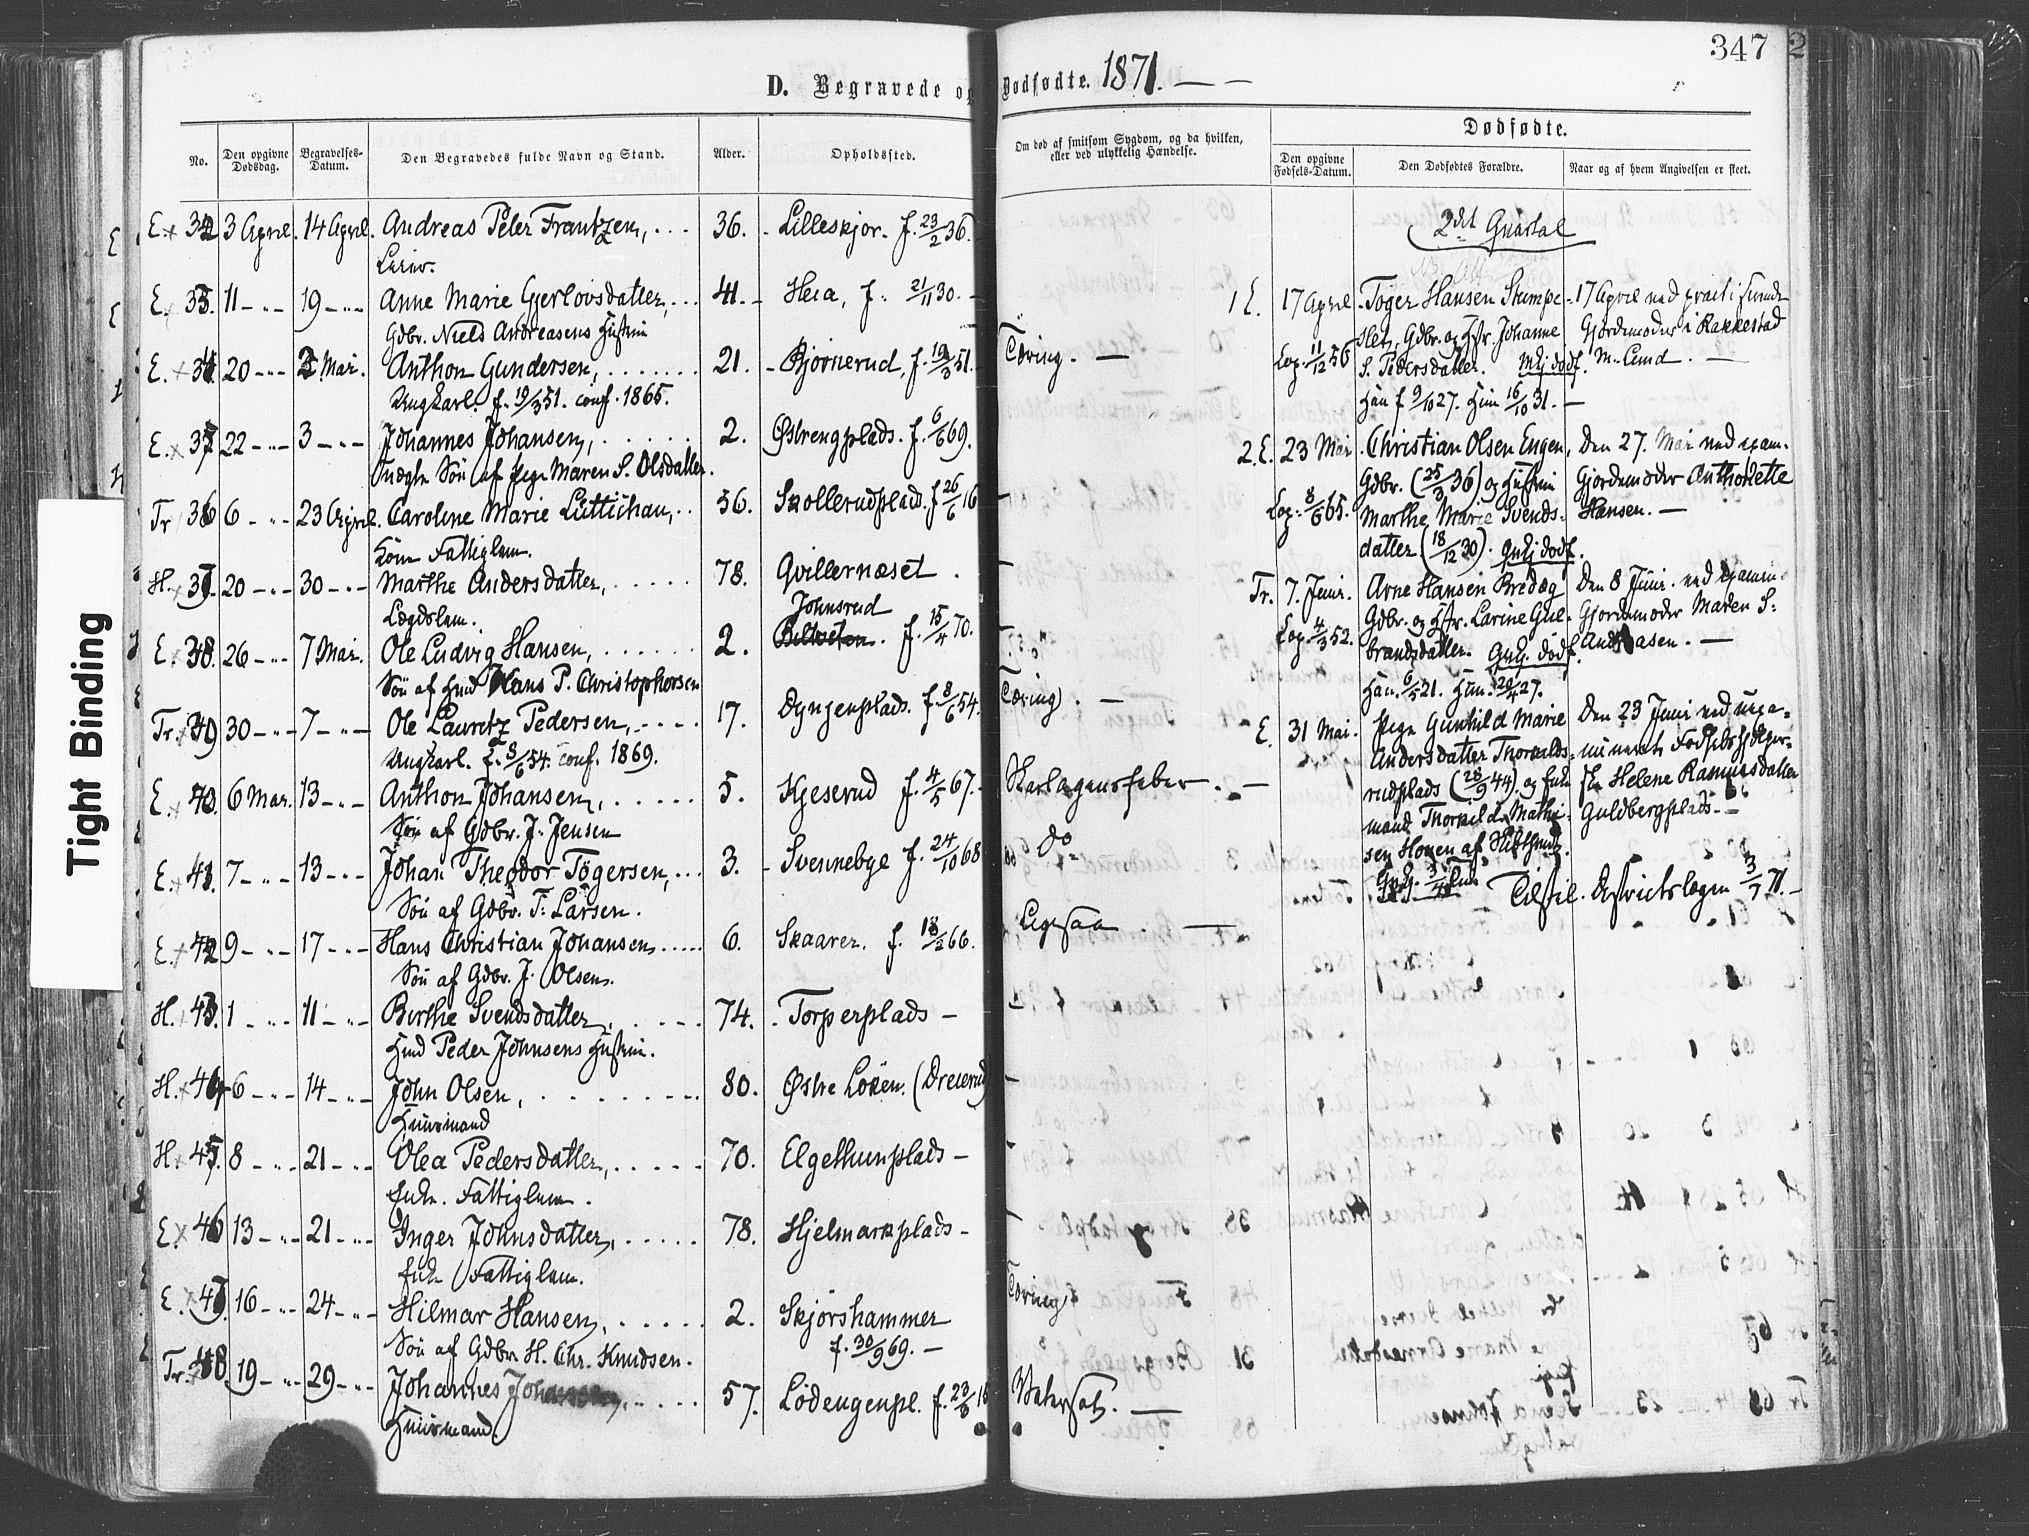 347 2
D. Begravede og Dødfødte. 1871. — -
No.
Den opgivne Dødsdag.
Begravelses-Datum.
Den Begravedes fulde Navn og Stand.
Alder.
Opholdssted.
Om død af smitsom Sygdom, og da hvilken, eller ved ulykkelig Hændelse.
Dødfødte.
Den opgivne Fødsels-Datum.
Den Dødfødtes Forældre.
Naar og af hvem Angivelsen er skeet.
E. 32 3 April. 14 April. Andreas Peter Frantzen, ... 36. Lilleskjor. f. 23/2 36.
E. 33. 11 - „ - 19 - „ - Anne Marie Gjerlovsdatter, ... 41. - Heia, f. 21/11 30. -
Gdbr. Niels Andreasens Hustru
E. 34. 20 - „ - 2 Mai. Anthon Gundersen, ....... 21. - Bjørnerud, f. 19/3 51. Tæring. —
Ungkarl. f. 19/3 51. conf. 1865.
E. 35 22 - „ - 3 - „ - Johannes Johansen, ...... 2. Østrengplads. f. 6/6 69.
Uægte Søn af Pige Maren S. Olsdatter.
Tr 36 6 - „ - 23 April. Caroline Marie Luttichau, .. 56. Skollerudplads. f 26/6 16 -
Fattiglem.
H. 37 20 - „ - 30 - „ - Marthe Andersdatter, ..... 78. Gvillernæset . -
Lægdslem.
Johnsrud
E. 38. 26 - „ - 7 Mai. Ole Ludvig Hansen, ...... 2. f. 15/4 70. -
Søn af Hmd Hans P. Christophersen
Tr. 39 30 - „ - 7 - „ - Ole Lauritz Pedersen, ..... 17. Dyngenplads. f. 8/6 54. Tæring. —
Ungkarl. f. 8/6 54. conf. 1869.
E. 40. 6 Mai. 13 - „ - Anthon Johansen, ...... 5. Kjeserud f. 4/5 67. - . —
Søn af Gdbr. J. Jensen
E. 41. 7 - „ - 13 - „ - Johan Theodor Tögersen, ... 3. - Svennebye f. 24/10 68 do
Søn af Gdbr. T. Larsen.
E. 42 9 - „ - 17 - „ - Hans Christian Johansen, ..... 6. Skaarer. f. 18/2 66. . —
Søn af Gdbr. J. Olsen.
H. 43. 1 - „ - 11 - „ - Berthe Svendsdatter, ..... 74. Torperplads -
Hmd Peder Johnsens Hustru.
H. 44 6 - „ - 14 - „ - John Olsen, ........ 80. Østre Löken. (Dreierud) -
Huusmand
H. 45. 8 - „ - 21 - „ - Olea Pedersdatter, ..... 70. Elgethunplads -
Enke. Fattiglem.
E. 46 13 - „ - 21 - „ - Inger Johnsdatter, ..... 78. Hjelmarkplads -
Enke Fattiglem.
E. 47 16 - „ - 24 - „ - Hilmar Hansen, ..... 2. Skjørshammer Tæring
Søn af Gdbr H. Chr. Knudsen. f. 30/9 69. -
Tr. 48. 19 - „ - 29 - „ - Johannes Johansen, ..... 57. Lödengenpl. f. 23/6 Vatersot. —
Huusmand.
2det Quartal
1 E. 17 April - Töger Hansen Stumpe- 17 April ved
slet, Gdbr. og Hstr. Johanne Gjordemoder i Rakkestad
Lop. 11/12 56 S. Pedersdatter. M. Lund. —
Han f 9/10 27. Hun 16/10 31. —
2. E. 23 Mai. Christian Olsen Engen, Den 27. Mai ved exam.
Gdbr. (25/3 36) og Hustru Gjordemoder Anthonette
Lop. 8/6 65. Marthe Marie Svends- Hansen. —
datter (18/12 30).
Tr. 7. Juni. Arne Hansen Bredæg Den 8 Juni. ved examin.
Gdbr. og Hstr. Larine Gul- Gjordemoder Maren S.
Lop. 4/3 52. brandsdatter. Andreasen. —
Han. 6/5 21. Hun. 20/4 27.
E. 31 Mai. Pige Gunhild Marie Den 23 Juni ved uexa-
Andersdatter Thorkilds- mineret Fødselshjelper-
rudplads (28/9 44). og Enke- ske Helene Rasmusdatter
mand Thorkild Mathi- Guldbergplads. -
sen Hoven af
Tilstil. Districtslægen 3/7 71. —
Tight Binding